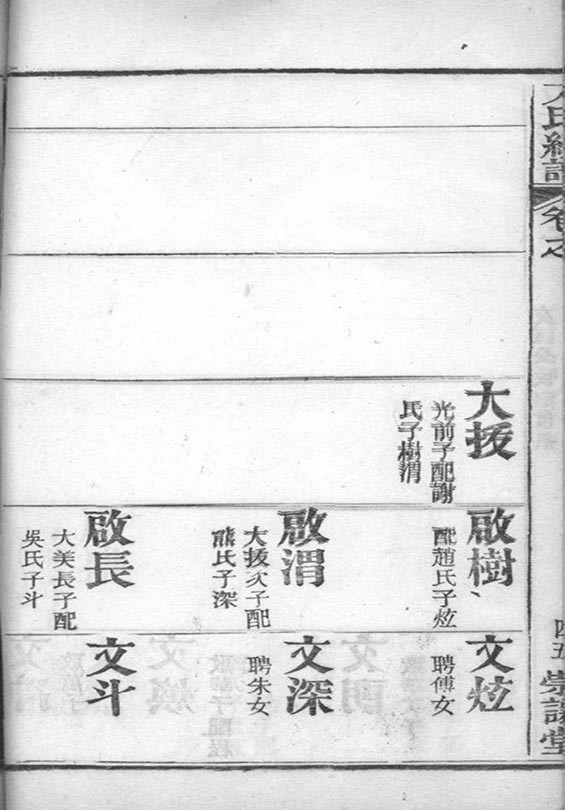 大援
光前子配謝
氏子樹渭
啟樹
配趙氏子炫
啟渭
大援次子配
熊氏子深
啟長
大美長子配
吳氏子斗
文炫
聘傅女
文深
聘朱女
文斗
氏續譜
卷之
四五
崇讓堂